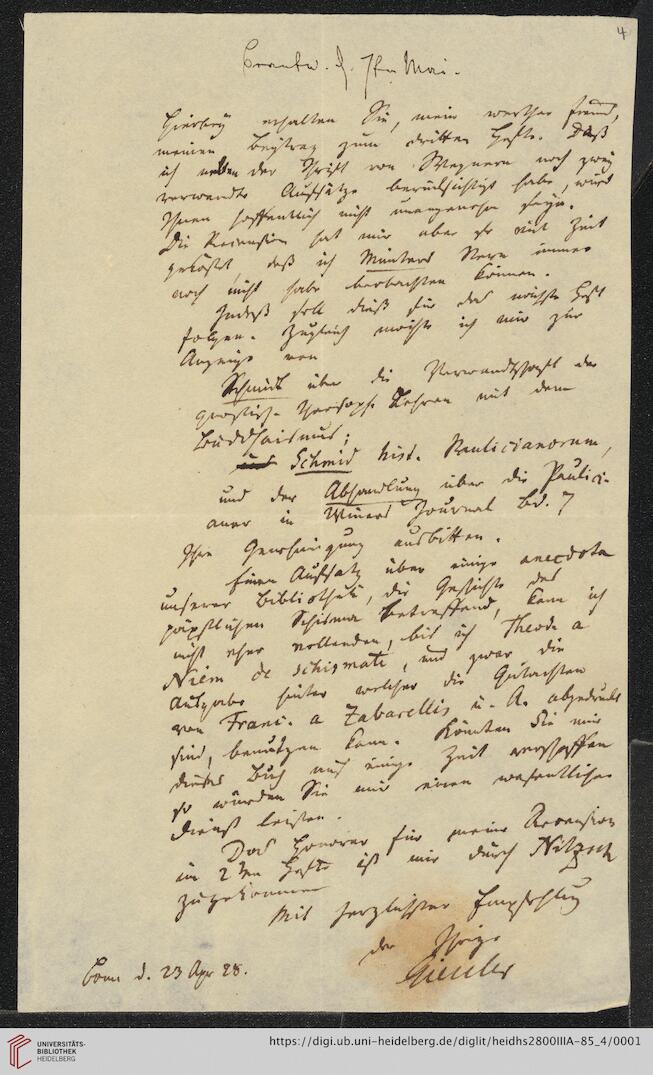 4
beantw. d. 7ten Mai.
Hierbey erhalten Sie, mein werther Freund,
meinen Beytrag zum dritten Hefte. Daß
ich neben der Schrift von Wegnern noch zwey
verwandte Aufsätze berücksichtigt habe, wird
Ihnen hoffentlich nicht unangenehm seyn.
Die Recension hat mir aber so viel Zeit
gekostet, daß ich Münters Stern immer
noch nicht habe beobachten können.
Indeß soll dieß für das nächste Heft
folgen. Zugleich möchte ich mir zur
Anzeige von
Schmidt über die Verwandtschaft der
gnostisch-theosoph. Lehren mit dem
Buddhaismus;
Schmid hist. Paulicianorum,
und der Abhandlung über die Paulici-
aner in Winers Journal Bd. 7
Ihre Genehmigung ausbitten.
Einen Aufsatz über einige anecdota
unserer Bibliothek, die Geschichte des
päpstlichen Schisma betreffend, kann ich
nicht eher vollenden, bis ich Theod. a
Niem de schismate, und zwar die
Ausgabe hinter welcher die Gutachten
von Franc. a Zabarellis u. A. abgedruckt
sind, benutzen kann. Könnten Sie mir
dieses Buch auf einige Zeit verschaffen
so würden Sie mir einen wesentlichen
Dienst leisten.
Das Honorar für meine Recension
im 2ten Hefte ist mir durch Nitzsch
zugekommen
Mit herzlichster Empfehlung
der Ihrige
Gieseler
Bonn d. 23 Apr 28.
UNIVERSITÄTS-
BIBLIOTHEK
HEIDELBERG
https://digi.ub.uni-heidelberg.de/diglit/heidhs2800IIIA-85_4/0001